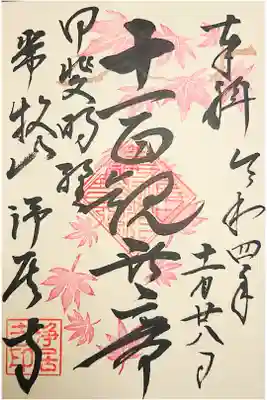 奉拝 令和四年
十一月廿八日
十一面観世音
甲斐
常牧山 浄居寺
浄居寺印